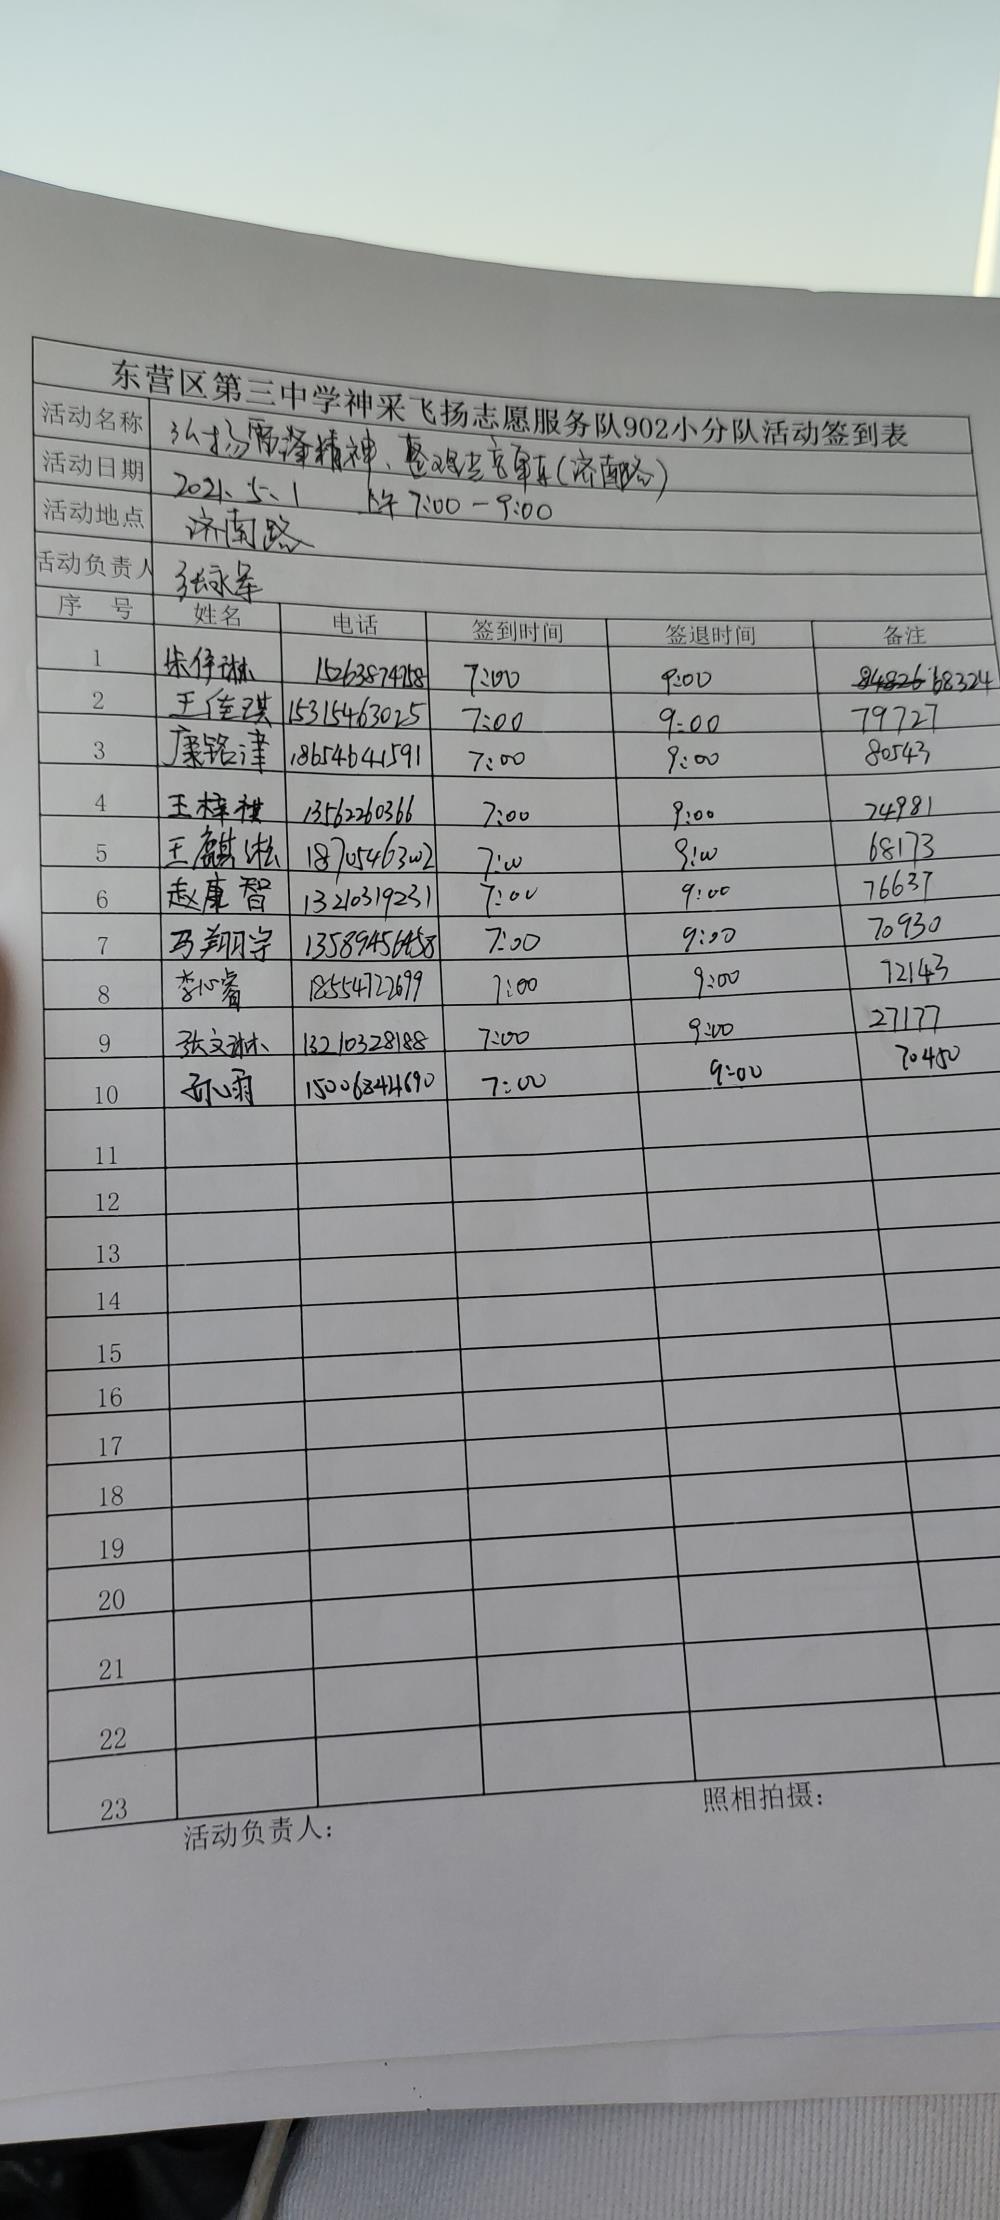 东营区第三中学神采飞扬志愿服务队902小分队活动签到表
活动名称 弘扬雷锋精神、整理共享单车(济南路)
活动日期 2021.5.1 上午7:00-9:00
活动地点 济南路
活动负责人 张永军
序号 姓名 电话 签到时间 签退时间 备注
1 朱伊琳 15263874758 7:00 9:00 68324
2 王佳琪 15315463025 7:00 9:00 79727
3 康铭津 18654641591 7:00 9:00 80543
4 王梓祺 13562260366 7:00 9:00 74981
5 王麒淞 18705463002 7:00 9:00 68173
6 赵康智 13210319231 7:00 9:00 76637
7 马翔宇 13589456458 7:00 9:00 70930
8 李心睿 18554722699 7:00 9:00 72143
9 张文琳 13210328188 7:00 9:00 27177
10 心雨 15006844690 7:00 9:00 70450
11
12
13
14
15
16
17
18
19
20
21
22
23
活动负责人: 照相拍摄: